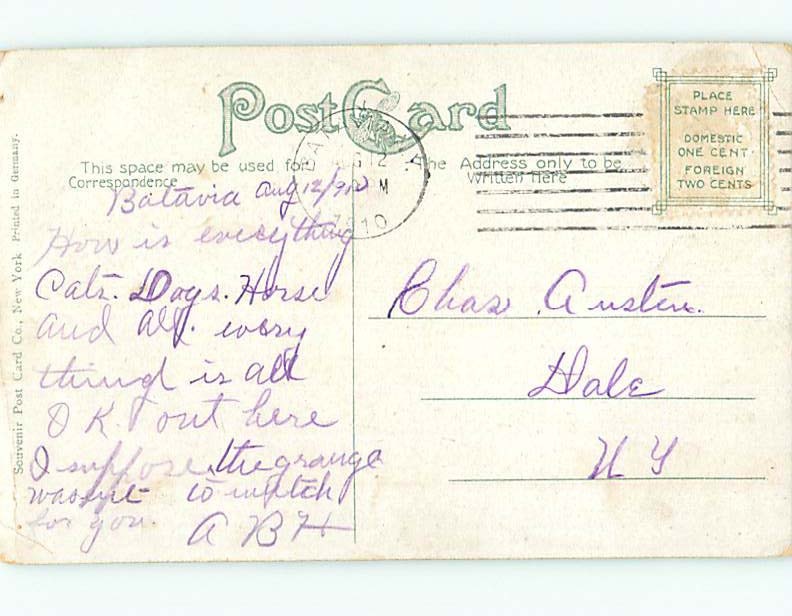 Post Card
PLACE
STAMP HERE
DOMESTIC
ONE CENT
FOREIGN
TWO CENTS
This space may be used for
Correspondence
The Address only to be
Written Here
AUG 12
M
1910
Batavia Aug 12/910
How is everything
Cats. Dogs. Horse
and all. every
thing is all
O K. out here
I suppose the grange
wasnt to mutch
for you.
A B H
Chas. Austin.
Dale
N Y
Souvenir Post Card Co., New York Printed in Germany.